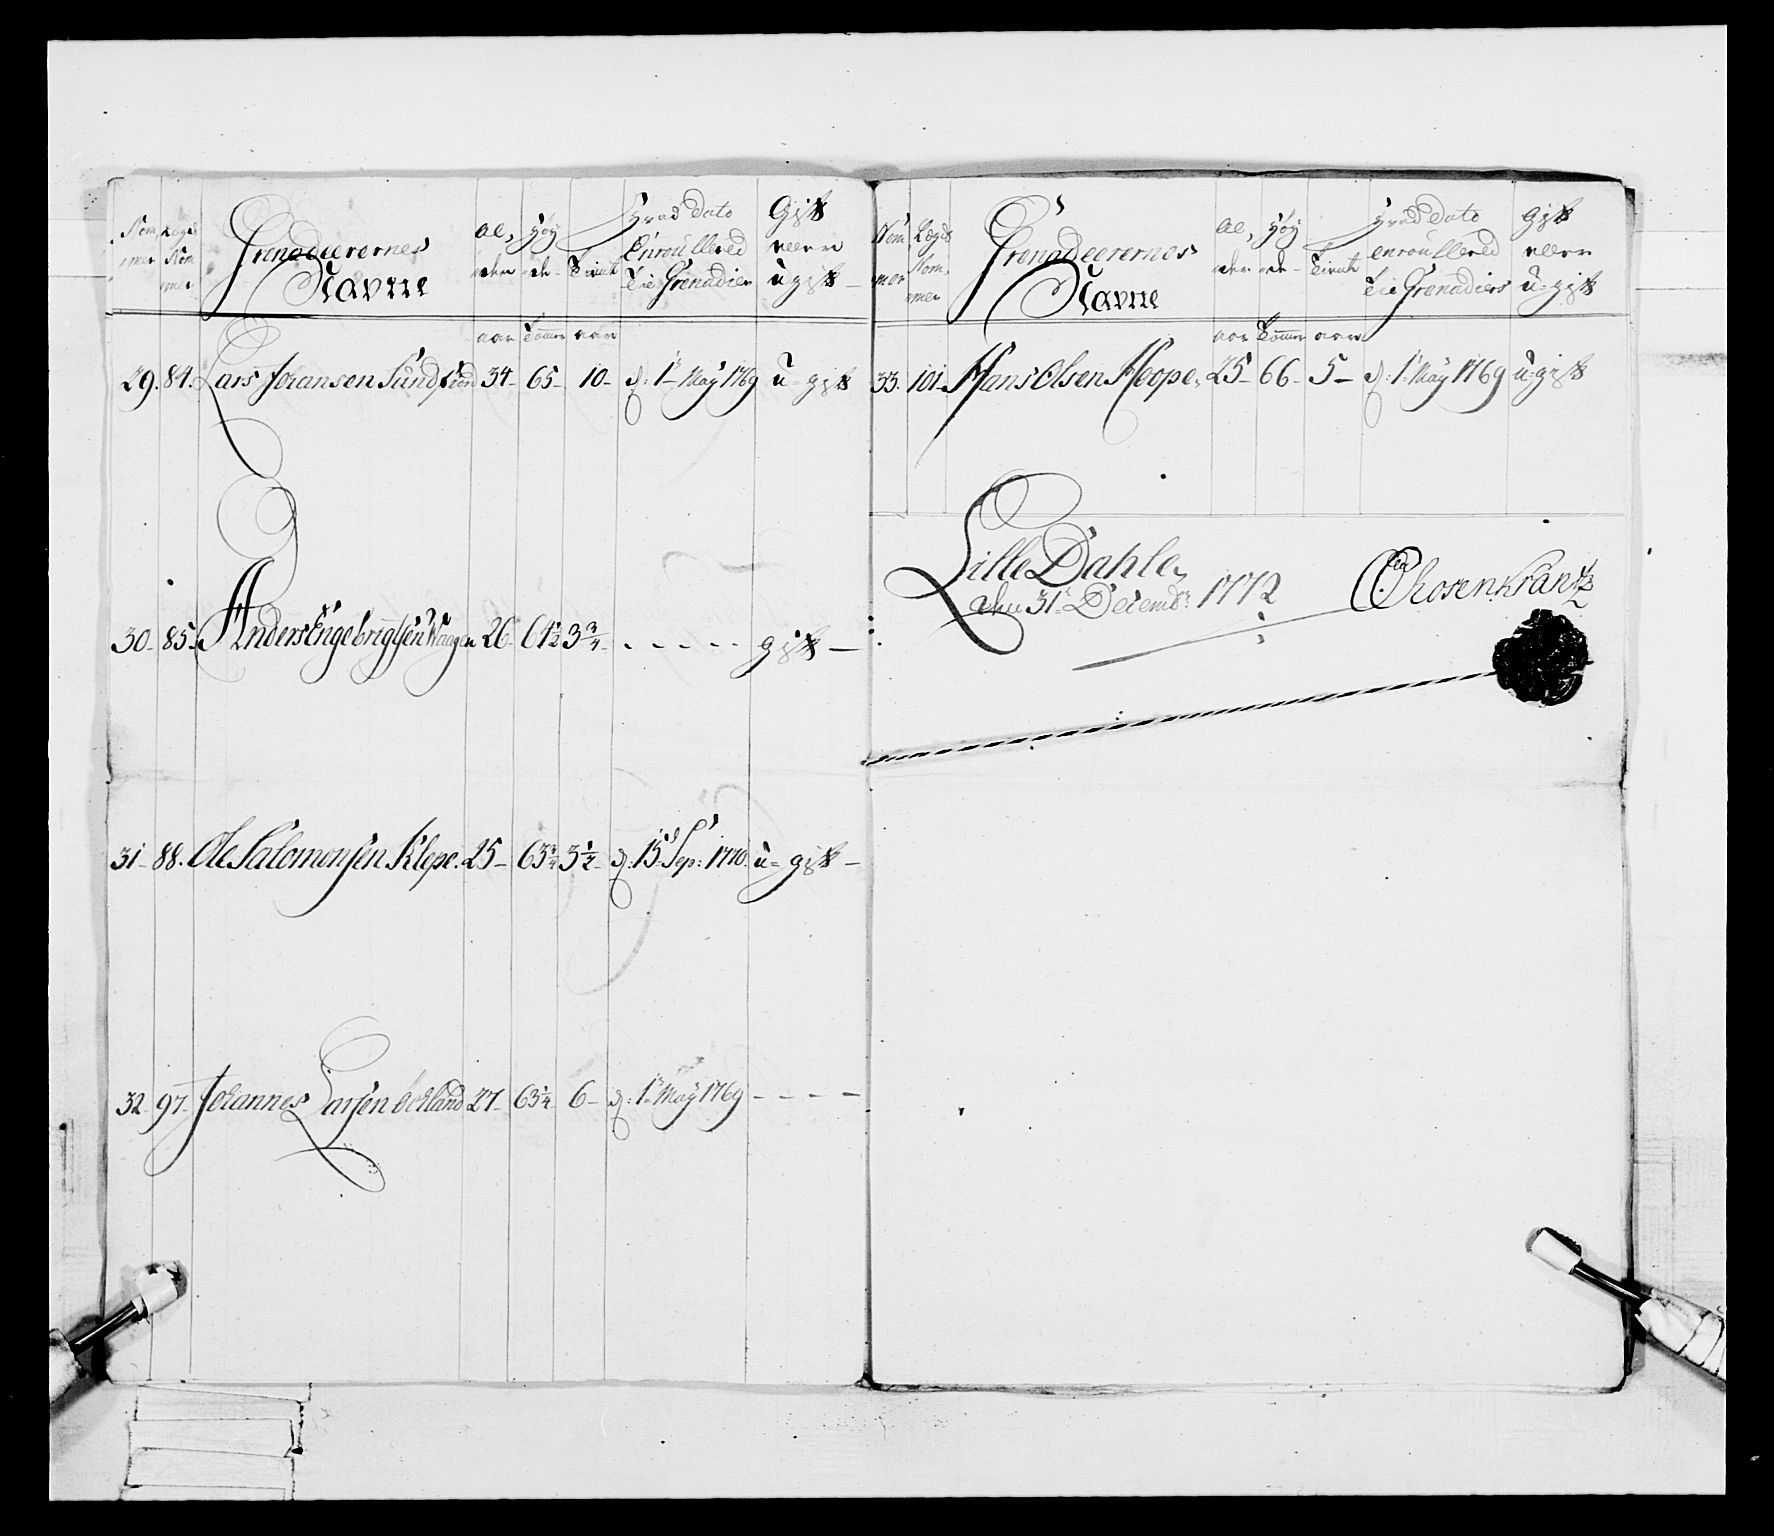 Nom,
mer
Lægds
Nom
mer
Grenadeerernes
Navne
Al,
der
Høy
de-
Tient
Hvad Dato
Enroullered
til Grenadier
Gift
eller
ugift
aar Tomer aar
29. 84. Lars Johansen Sundfiord 34- 65- 10- d: 1te May 1769 u-gift
30- 85. Anders Engebrigtsen Waage 26 64½ 3¾ - - - - - gift -
31- 88. Ole Salomonsen Klepe. 25- 63¾ 3½- d: 15de Sep: 1770. u-gift-
32- 97- Johannes Larsen 27- 63¼ 6- d: 1te May 1769 - - - -
Nom
mer
Lægds
Nom,
mer
Grenadeerernes
Navne
Al,
der
Høy
de-
Tient
Hvad Dato
enroullered
til Grenadiers
Gift
eller
u-gift
aar Tomer aar
33. 101- Hans Olsen Hope, 25- 66- 5- d: 1te May 1769 u-gift
Lille Dahle,
den 31te Decemb: 1772
Rosenkrantz